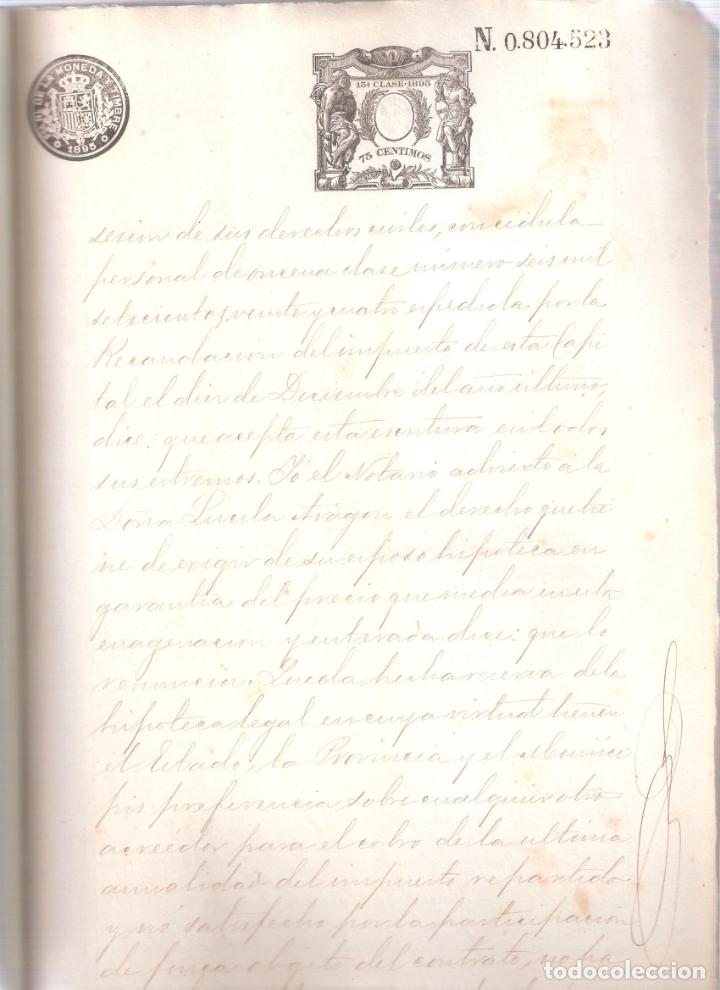 N. 0.804.523
MONEDA Y TIMBRE
1895
13ª CLASE-1895
75 CENTIMOS
sesion de sus derechos civiles, con cédula
personal de oncena clase número seis mil
setecientos, veinte y cuatro espedida por la
Recaudacion del impuesto de esta Capi
tal el diez de Diciembre del año último,
dice: que acepta esta escritura en todos
sus estremos. Yó el Notario advierto á la
Doña Lucila Aragon el derecho que tie
ne de exigir de su esposo hipoteca en
garantia del precio que media en esta
enagenacion y enterada dice: que lo
renuncia. Queda hecha reserva de la
hipoteca legal en cuya virtud tienen
el Estado, la Provincia y el Munici
pio preferencia sobre cualquier otro
acreedor para el cobro de la ultima
anualidad del impuesto repartido
y nó satisfecho por la participacion
de finca objeto del contrato, no ha
todocoleccion
todocoleccion.net